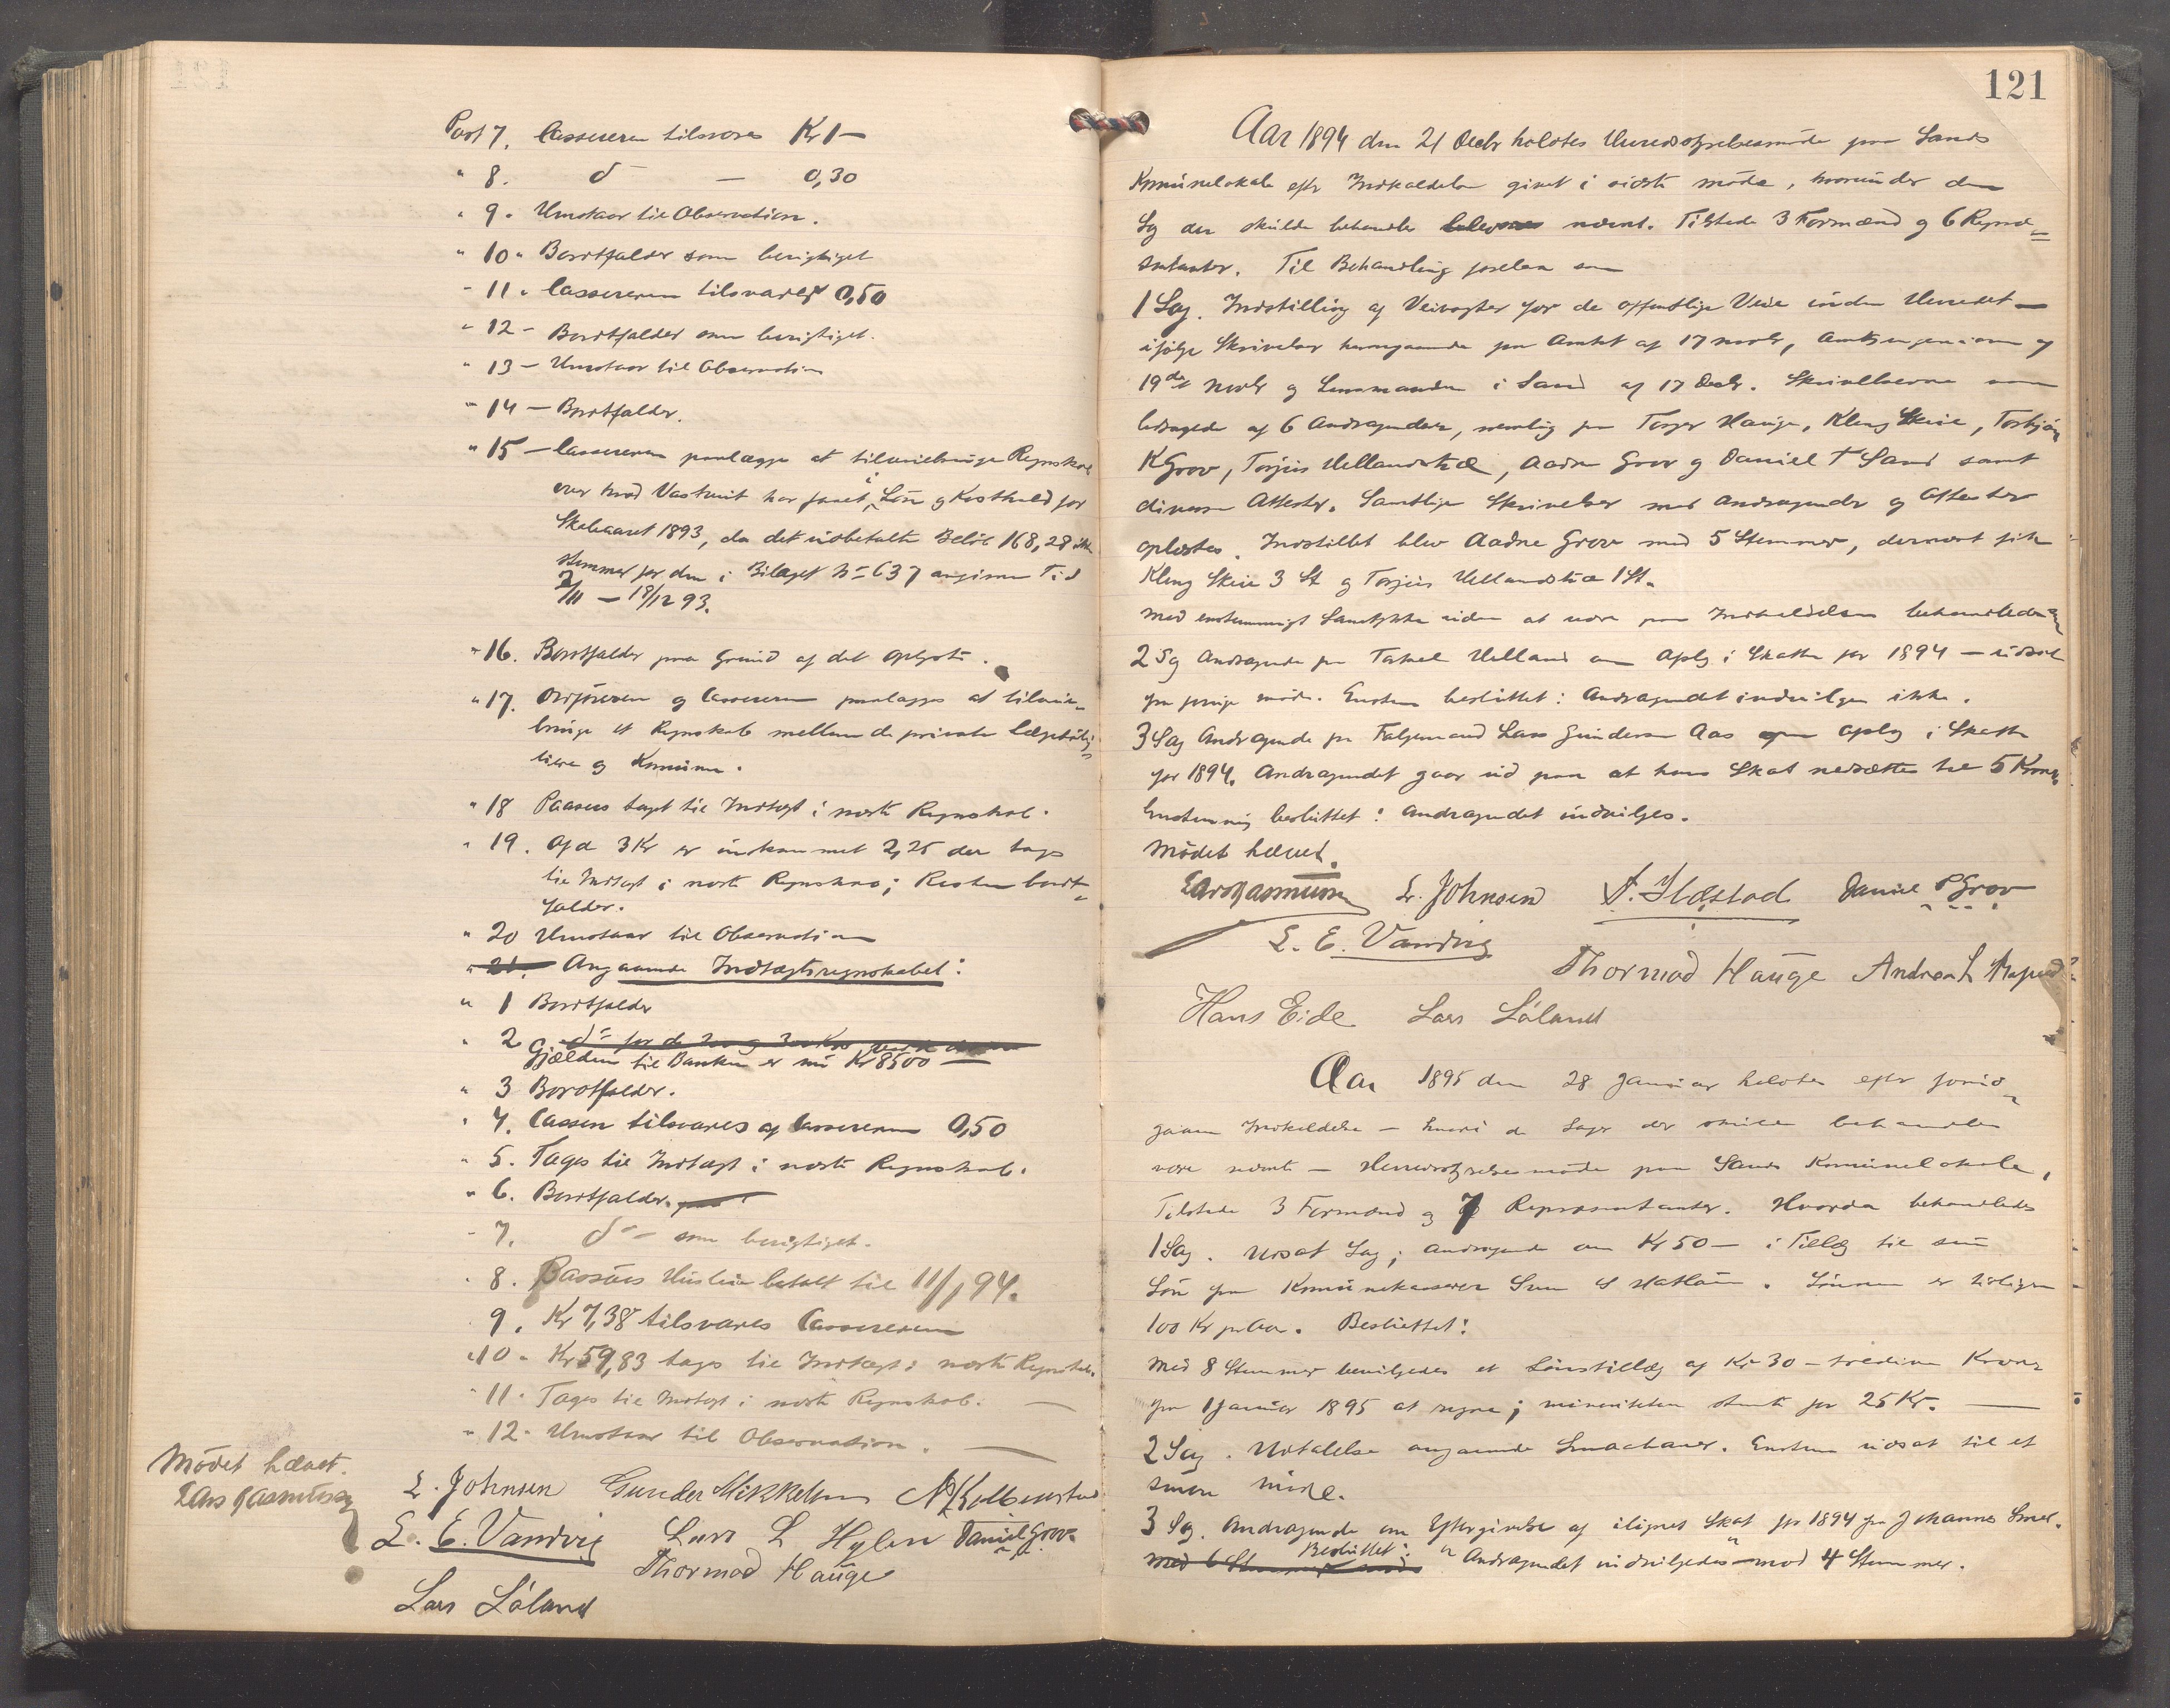 Post 7. Cassereren tilsvares Kr 1 –
" 8. d – 0,30
" 9. Henstaar til Observation.
" 10. Bortfalder som berigtiget
" 11. Cassereren tilsvarer 0,50
" 12 – Bortfalder som berigtiget.
" 13 – Henstaar til Observation
" 14 – Bortfalder.
" 15 – Cassereren paalægges at tilveiebringe Regnskab
over hvad Vastveit har faaet i Løn og Kosthold for
Skoleaaret 1893, da det udbetalte Beløb 168,28 ikke
stemmer for den i Bilaget No 637 angivne Tid
2/11 – 18/12 93.
" 16. Bortfalder paa Grund af det oplyste.
" 17. Ordføreren og Cassereren paalægges at tilveie-
bringe et Regnskab mellem de private
og Kommunen.
" 18 Paasees taget til Indtægt i næste Regnskab.
" 19. Af de 3 Kr er indkommet 2,25 der tages
til Indtægt i næste Regnskab; Resten bort-
falder.
" 20 Henstaar til Observation
" 21. Angaaende Indtægtsregnskabet:
" 1 Bortfalder
" 2 do for de 200 og 300 Kr
Gjælden til Banken er nu Kr 8500 –
" 3 Bortfalder.
" 4. Cassen tilsvares af Cassereren 0,50
" 5. Tages til Indtægt i næste Regnskab.
" 6. Bortfalder.
" 7. do – som berigtiget.
" 8. Bassøes Husleie betalt til 11/1 94.
9. Kr 7,38 tilsvares Cassereren
" 10 " Kr 59,83 tages til Indtægt i næste Regnskab.
" 11. Tages til Indtægt i næste Regnskab. –
" 12. Henstaar til Observation. –
Mødet hævet.
Lars Rasmussen
L. Johnsen Gunder Mikkelsen N Kolbenstved
L. E. Vandvig Lars L Hylen Daniel Grov
Thormod Hauge
Lars Løland
121
Aar 1894 den 21 Decbr holdtes Herredsstyrelsesmøde paa Sands
Kommunelokale efter Indkaldelse givet i sidste møde, hvorunder den
Sag der skulde behandles blev nævnt. Tilstede 3 Formænd og 6 Repræ=
sentanter. Til Behandling forelaa som
1 Sag. Indstilling af Veivogter for de offentlige Veie inden Herredet –
ifølge Skrivelser herangaaende fra Amtet af 17 novbr, Amtsingeniøren af
19de Novbr og Lensmanden i Sand af 17 Decbr. Skrivelserne var
ledsagede af 6 Andragender, nemlig fra Torger Hauge, Kleng Skeie, Torbjørn
K Grov, Torjeis Hellandstræ, Aadne Grov og Daniel T Sand samt
diverse Attester. Samtlige Skrivelser med Andragender og Attester
oplæstes. Indstillet blev Aadne Grov med 5 Stemmer, dernæst fik
Kleng Skeie 3 St og Torjeis Hellandstræ 1 St.
Med enstemmigt Samtykke uden at være paa Indkaldelsen behandledes
2 Sag Andragende fra Helland om Aplæg i Skatten for 1894 – udsat
fra forrige møde. Enstem besluttet: Andragendet indvilges ikke.
3 Sag Andragende fra Lars Gundersen Aas om aplæg i Skatten
for 1894. Andragendet gaar ud paa at hans Skat nedsættes til 5 Kroner.
Enstemmig besluttet: Andragendet indvilges.
Mødet hævet.
Lars Rasmussen L. Johnsen Daniel P Grov
L. E. Vandvig
Thormod Hauge Andreas L
Hans Eide Lars Løland
Aar 1895 den 28 Januar holdtes efter forud-
gaaen Indkaldelse – hvori de Sager der skulde behandles
være nævnte – Herredsstyrelsesmøde paa Sands Kommunelokale,
Tilstede 3 Formænd og 7 Repræsentanter. Hvorda behandledes
1 Sag. Udsat Sag; andragende om Kr 50 – i Tillæg til sin
Løn fra Kommunekasserer Lønnen er tidligere
100 Kr pr Aar. Besluttet:
Med 8 Stemmer bevilgedes et Lønstillæg af Kr 30 – tredive Kroner
fra 1 Januar 1895 at regne; minoriteten stemte for 25 Kr. –
2 Sag. Udtalelse angaaende Enstem udsat til et
møde.
3 Sag. Andragende om Eftergivelse af ilignet Skat for 1894 fra Johannes
med 6 Stemmer mod Besluttet: "Andragendet indvilgedes" – mod 4 Stemmer.